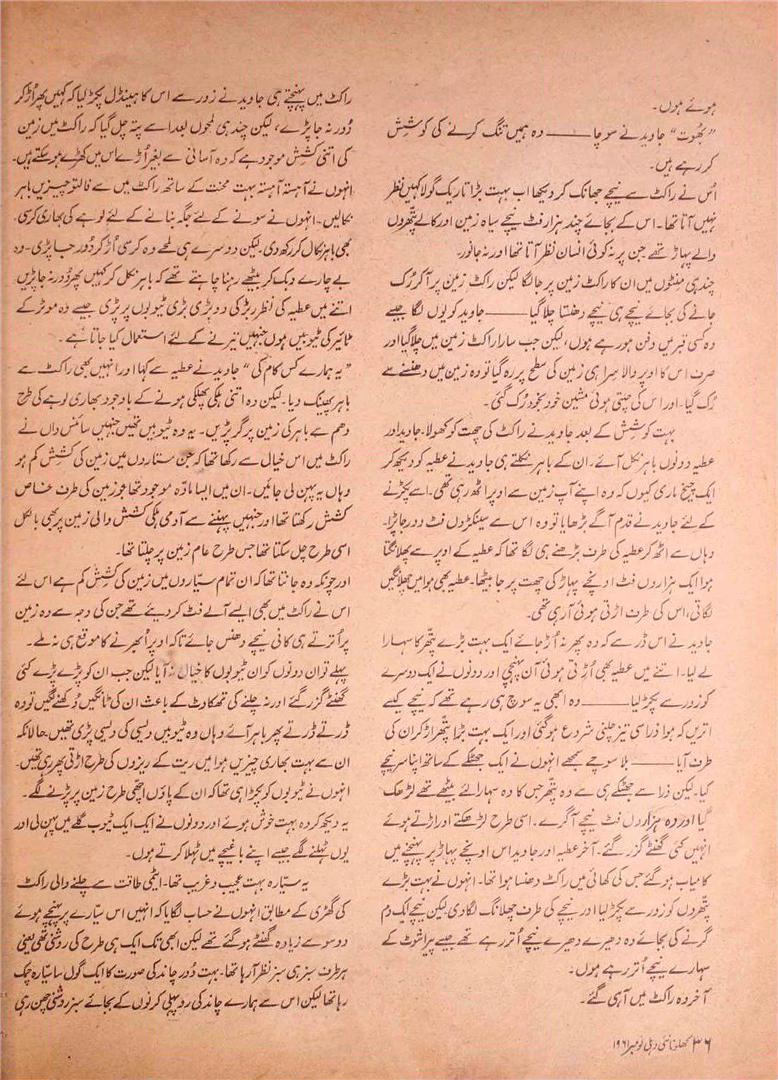 ہوئے ہوں۔
”بھوت“ جاوید نے سوچا ——— وہ ہمیں تنگ کرنے کی کوشش
کر رہے ہیں۔
اُس نے راکٹ سے نیچے جھانک کر دیکھا اب بہت بڑا تاریک گولا کہیں نظر
نہیں آتا تھا۔ اس کے بجائے چند ہزار فٹ نیچے سیاہ زمین اور کالے پتھروں
والے پہاڑ تھے جن پر نہ کوئی انسان نظر آتا تھا اور نہ جانور۔
چند ہی منٹوں میں ان کا راکٹ زمین پر جا لگا لیکن راکٹ زمین پر آ کر رُک
جانے کی بجائے نیچے ہی نیچے دھنستا چلا گیا ——— جاوید کو یوں لگا جیسے
وہ کسی قبر میں دفن ہو رہے ہوں، لیکن جب سارا راکٹ زمین میں چلا گیا اور
صرف اس کا اوپر والا سِرا ہی زمین کی سطح پر رہ گیا تو وہ زمین میں دھنسنے سے
رُک گیا۔ اور اس کی چلتی ہوئی مشین خود بخود رُک گئی۔
بہت کوشش کے بعد جاوید نے راکٹ کی چھت کو کھولا۔ جاوید اور
عطیہ دونوں باہر نکل آئے۔ ان کے باہر نکلتے ہی جاوید نے عطیہ کو دیکھ کر
ایک چیخ ماری کیوں کہ وہ اپنے آپ زمین سے اوپر اٹھ رہی تھی۔ اسے پکڑنے
کے لئے جاوید نے قدم آگے بڑھایا تو وہ اس سے سینکڑوں فٹ دور جا پڑا۔
وہاں سے اٹھ کر عطیہ کی طرف بڑھنے ہی لگا تھا کہ عطیہ کے اوپر سے پھلانگتا
ہوا ایک ہزاروں فٹ اونچے پہاڑ کی چھت پر جا بیٹھا۔ عطیہ بھی ہوا میں چھلانگیں
لگاتی، اس کی طرف اڑتی ہوئی آ رہی تھی۔
جاوید نے اس ڈر سے کہ وہ پھر نہ اُڑ جائے ایک بہت بڑے پتھر کا سہارا
لے لیا۔ اتنے میں عطیہ بھی اُڑتی ہوئی آن پہنچی اور دونوں نے ایک دوسرے
کو زور سے پکڑ لیا ——— وہ ابھی یہ سوچ ہی رہے تھے کہ نیچے کیسے
اتریں کہ ہوا ذرا سی تیز چلنی شروع ہو گئی اور ایک بہت بڑا پتھر اڑ کر ان کی
طرف آیا ——— بلا سوچے سمجھے انہوں نے ایک جھٹکے کے ساتھ اپنا سر نیچے
کیا۔ لیکن ذرا سے جھٹکے ہی سے وہ پتھر جس کا وہ سہارا لئے بیٹھے تھے لڑھک
گیا اور وہ ہزاروں فٹ نیچے آ گرے۔ اسی طرح لڑھکتے اور اڑتے ہوئے
انہیں کئی گھنٹے گزر گئے۔ آخر عطیہ اور جاوید اس اونچے پہاڑ پر پہنچنے میں
کامیاب ہو گئے جس کی کھائی میں راکٹ دھنسا ہوا تھا۔ انہوں نے بہت بڑے
پتھروں کو زور سے پکڑ لیا اور نیچے کی طرف چھلانگ لگا دی لیکن نیچے ایک دم
گرنے کی بجائے وہ دھیرے دھیرے نیچے اُتر رہے تھے جیسے پیراشوٹ کے
سہارے نیچے اُتر رہے ہوں۔
آخر وہ راکٹ میں آ ہی گئے۔
راکٹ میں پہنچتے ہی جاوید نے زور سے اس کا ہینڈل پکڑ لیا کہ کہیں پھر اُڑ کر
دُور نہ جا پڑے، لیکن چند ہی لمحوں بعد اسے پتہ چل گیا کہ راکٹ میں زمین
کی اتنی کشش موجود ہے کہ وہ آسانی سے بغیر اُڑے اس میں کھڑے ہو سکتے ہیں۔
انہوں نے آہستہ آہستہ بہت محنت کے ساتھ راکٹ میں سے فالتو چیزیں باہر
نکالیں۔ انہوں نے سونے کے لئے جگہ بنانے کے لئے لوہے کی بھاری کرسی
بھی باہر نکال کر رکھ دی۔ لیکن دوسرے ہی لمحے وہ کرسی اُڑ کر دُور جا پڑی۔ وہ
بے چارے دبک کر بیٹھے رہنا چاہتے تھے کہ باہر نکل کر کہیں پھر دُور نہ جا پڑیں۔
اتنے میں عطیہ کی نظر بڑ کی دو بڑی بڑی ٹیوبوں پر پڑی جیسے وہ موٹر کے
ٹائیر کی ٹیوبیں ہوں جنہیں تیرنے کے لئے استعمال کیا جاتا ہے۔
”یہ ہمارے کس کام کی“ جاوید نے عطیہ سے کہا اور انہیں بھی راکٹ سے
باہر پھینک دیا۔ لیکن وہ اتنی ہلکی پھلکی ہونے کے باوجود بھاری لوہے کی طرح
دھم سے باہر کی زمین پر گر پڑیں۔ یہ وہ ٹیوبیں تھیں جنہیں سائنس داں نے
راکٹ میں اس خیال سے رکھا تھا کہ جن ستاروں میں زمین کی کشش کم ہو
وہاں یہ پہن لی جائیں۔ ان میں ایسا مادّہ موجود تھا جو زمین کی طرف خاص
کشش رکھتا تھا اور جنہیں پہننے سے آدمی ہلکی کشش والی زمین پر بھی بالکل
اسی طرح چل سکتا تھا جس طرح عام زمین پر چلتا تھا۔
اور چونکہ وہ جانتا تھا کہ ان تمام ستیاروں میں زمین کی کشش کم ہے اس لئے
اس نے راکٹ میں بھی ایسے آلے فٹ کر دیئے تھے جن کی وجہ سے وہ زمین
پر اُترتے ہی کافی نیچے دھنس جائے تاکہ اوپر اُبھرنے کا موقع ہی نہ ملے۔
پہلے تو ان دونوں کو ان ٹیوبوں کا خیال نہ آیا لیکن جب ان کو پڑے پڑے کئی
گھنٹے گزر گئے اور نہ چلنے کی تھکاوٹ کے باعث ان کی ٹانگیں دُکھنے لگیں تو وہ
ڈرتے ڈرتے پھر باہر آئے وہاں وہ ٹیوبیں ویسی کی ویسی پڑی تھیں۔ حالانکہ
ان سے بہت بھاری چیزیں ہوا میں ریت کے ریزوں کی طرح اڑتی پھر رہی تھیں۔
انہوں نے ٹیوبوں کو پکڑا ہی تھا کہ ان کے پاؤں اچھی طرح زمین پر پڑنے لگے۔
یہ دیکھ کر وہ بہت خوش ہوئے اور دونوں نے ایک ایک ٹیوب گلے میں پہن لی اور
یوں ٹہلنے لگے جیسے اپنے باغیچے میں ٹہلا کرتے ہوں۔
یہ ستیارہ بہت عجیب و غریب تھا۔ ایٹمی طاقت سے چلنے والی راکٹ
کی گھڑی کے مطابق انہوں نے حساب لگایا کہ انہیں اس ستیارے پر پہنچے ہوئے
دو سو سے زیادہ گھنٹے ہو گئے تھے لیکن ابھی تک ایک ہی طرح کی روشنی تھی یعنی
ہر طرف سبز ہی سبز نظر آ رہا تھا۔ بہت دُور چاند کی صورت کا ایک گول سا ستیارہ چمک
رہا تھا لیکن اس سے ہمارے چاند کی روپہلی کرنوں کے بجائے سبز روشنی چھن رہی
۳۶ کھلونا نئی دہلی نومبر ۱۹۶۱